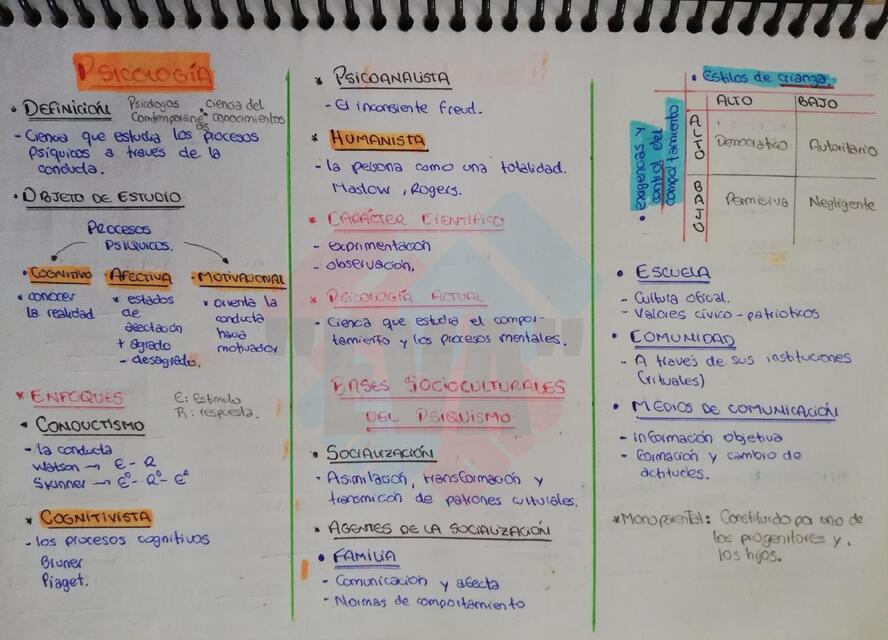 PSICOLOGÍA
• DEFINICIÓN
Psicologos Contemporáneos
• ciencia del conocimientos
- Ciencia que estudia los procesos
psíquicos a través de la
conducta.
• OBJETO DE ESTUDIO
PROCESOS
PSIQUICOS.
• COGNITIVO • AFECTIVA • MOTIVACIONAL
* conocer
la realidad
* estados
de
afectación
+ agrado
- desagrado.
* orienta la
conducta
hacia
motivador
* ENFOQUES
E: Estimulo
R: respuesta.
* CONDUCTISMO
- la conducta
Watson → E - R
Skinner → E° - R° - E²
* COGNITIVISTA
- los procesos cognitivos
Bruner
Piaget.
* PSICOANALISTA
- El inconsiente Freud.
* HUMANISTA
- la persona como una totalidad.
Maslow, Rogers.
* CARÁCTER CIENTÍFICO
- exprimentación
- observación.
* PSICOLOGÍA ACTUAL
- Ciencia que estudia el compor-
tamiento y los procesos mentales.
BASES SOCIOCULTURALES
DEL PSIQUISMO
• SOCIALIZACIÓN
- Asimilación, transformación y
transmición de patrones culturales.
* AGENTES DE LA SOCIALIZACIÓN
• FAMILIA
- Comunicación y afecta
- Normas de comportamiento
• Estilos de crianza.
• exigencias y
control del
comportamiento
ALTO BAJO
ALTO Democratico Autoritario
BAJO Permisiva Negligente
• ESCUELA
- Cultura oficial.
- Valores cívico-patrioticos
• COMUNIDAD
- A través de sus instituciones
(rituales)
• MEDIOS DE COMUNICACIÓN
- información objetiva
- formación y cambio de
actitudes.
* Monoparental: Constituido por uno de
los progenitores y.
los hijos.
"EVA"